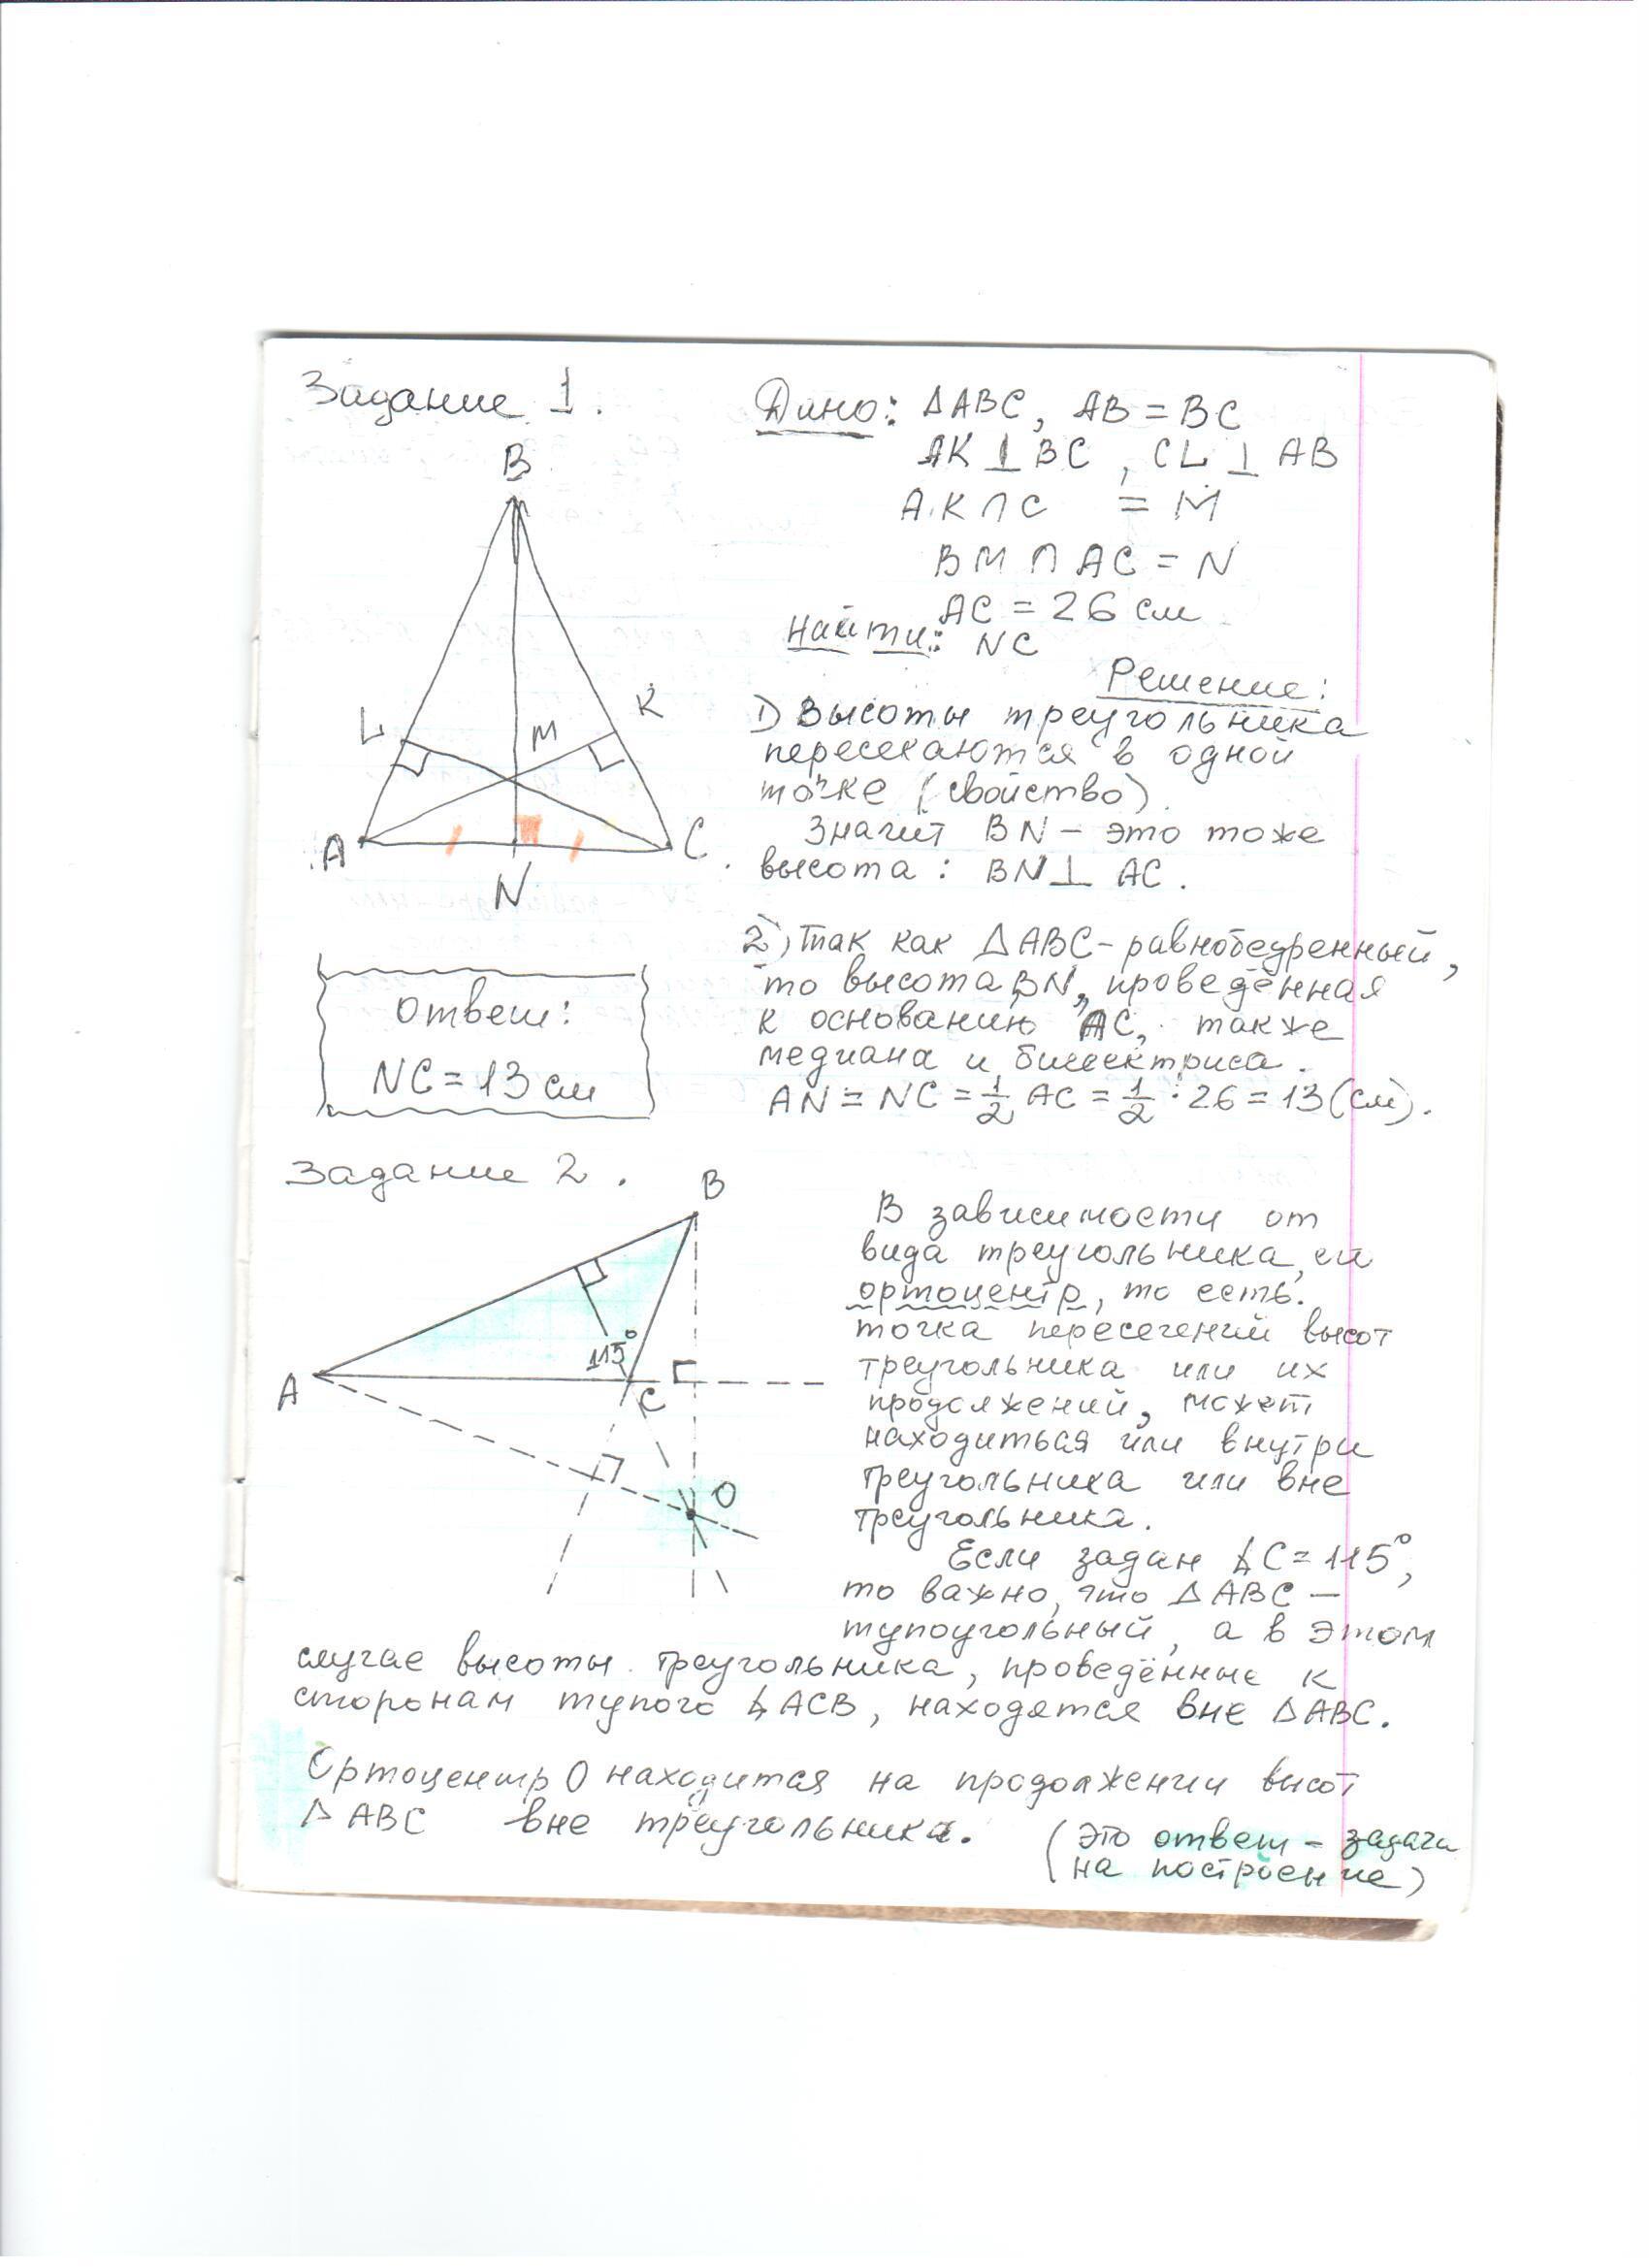 Задание 1.
Дано: ΔABC, AB = BC
AK ⊥ BC, CL ⊥ AB
AK ∩ C = M
BM ∩ AC = N
AC = 26 см
Найти: NC
Решение:
B
L
K
M
A
C
N
1) Высоты треугольника
пересекаются в одной
точке (свойство).
Значит BN – это тоже
высота: BN ⊥ AC.
2) Так как ΔABC – равнобедренный,
то высота BN, проведённая
к основанию AC, также
медиана и биссектриса.
AN = NC = 1/2 AC = 1/2 · 26 = 13 (см).
Ответ:
NC = 13 см
Задание 2.
B
A
115°
C
O
В зависимости от
вида треугольника, его
ортоцентр, то есть
точка пересечений высот
треугольника или их
продолжений, может
находиться или внутри
треугольника или вне
треугольника.
Если задан ∠C = 115°,
то важно, что ΔABC –
тупоугольный, а в этом
случае высоты треугольника, проведённые к
сторонам тупого ∠ACB, находятся вне ΔABC.
Ортоцентр O находится на продолжении высот
ΔABC вне треугольника.
(это ответ – задача
на построение)